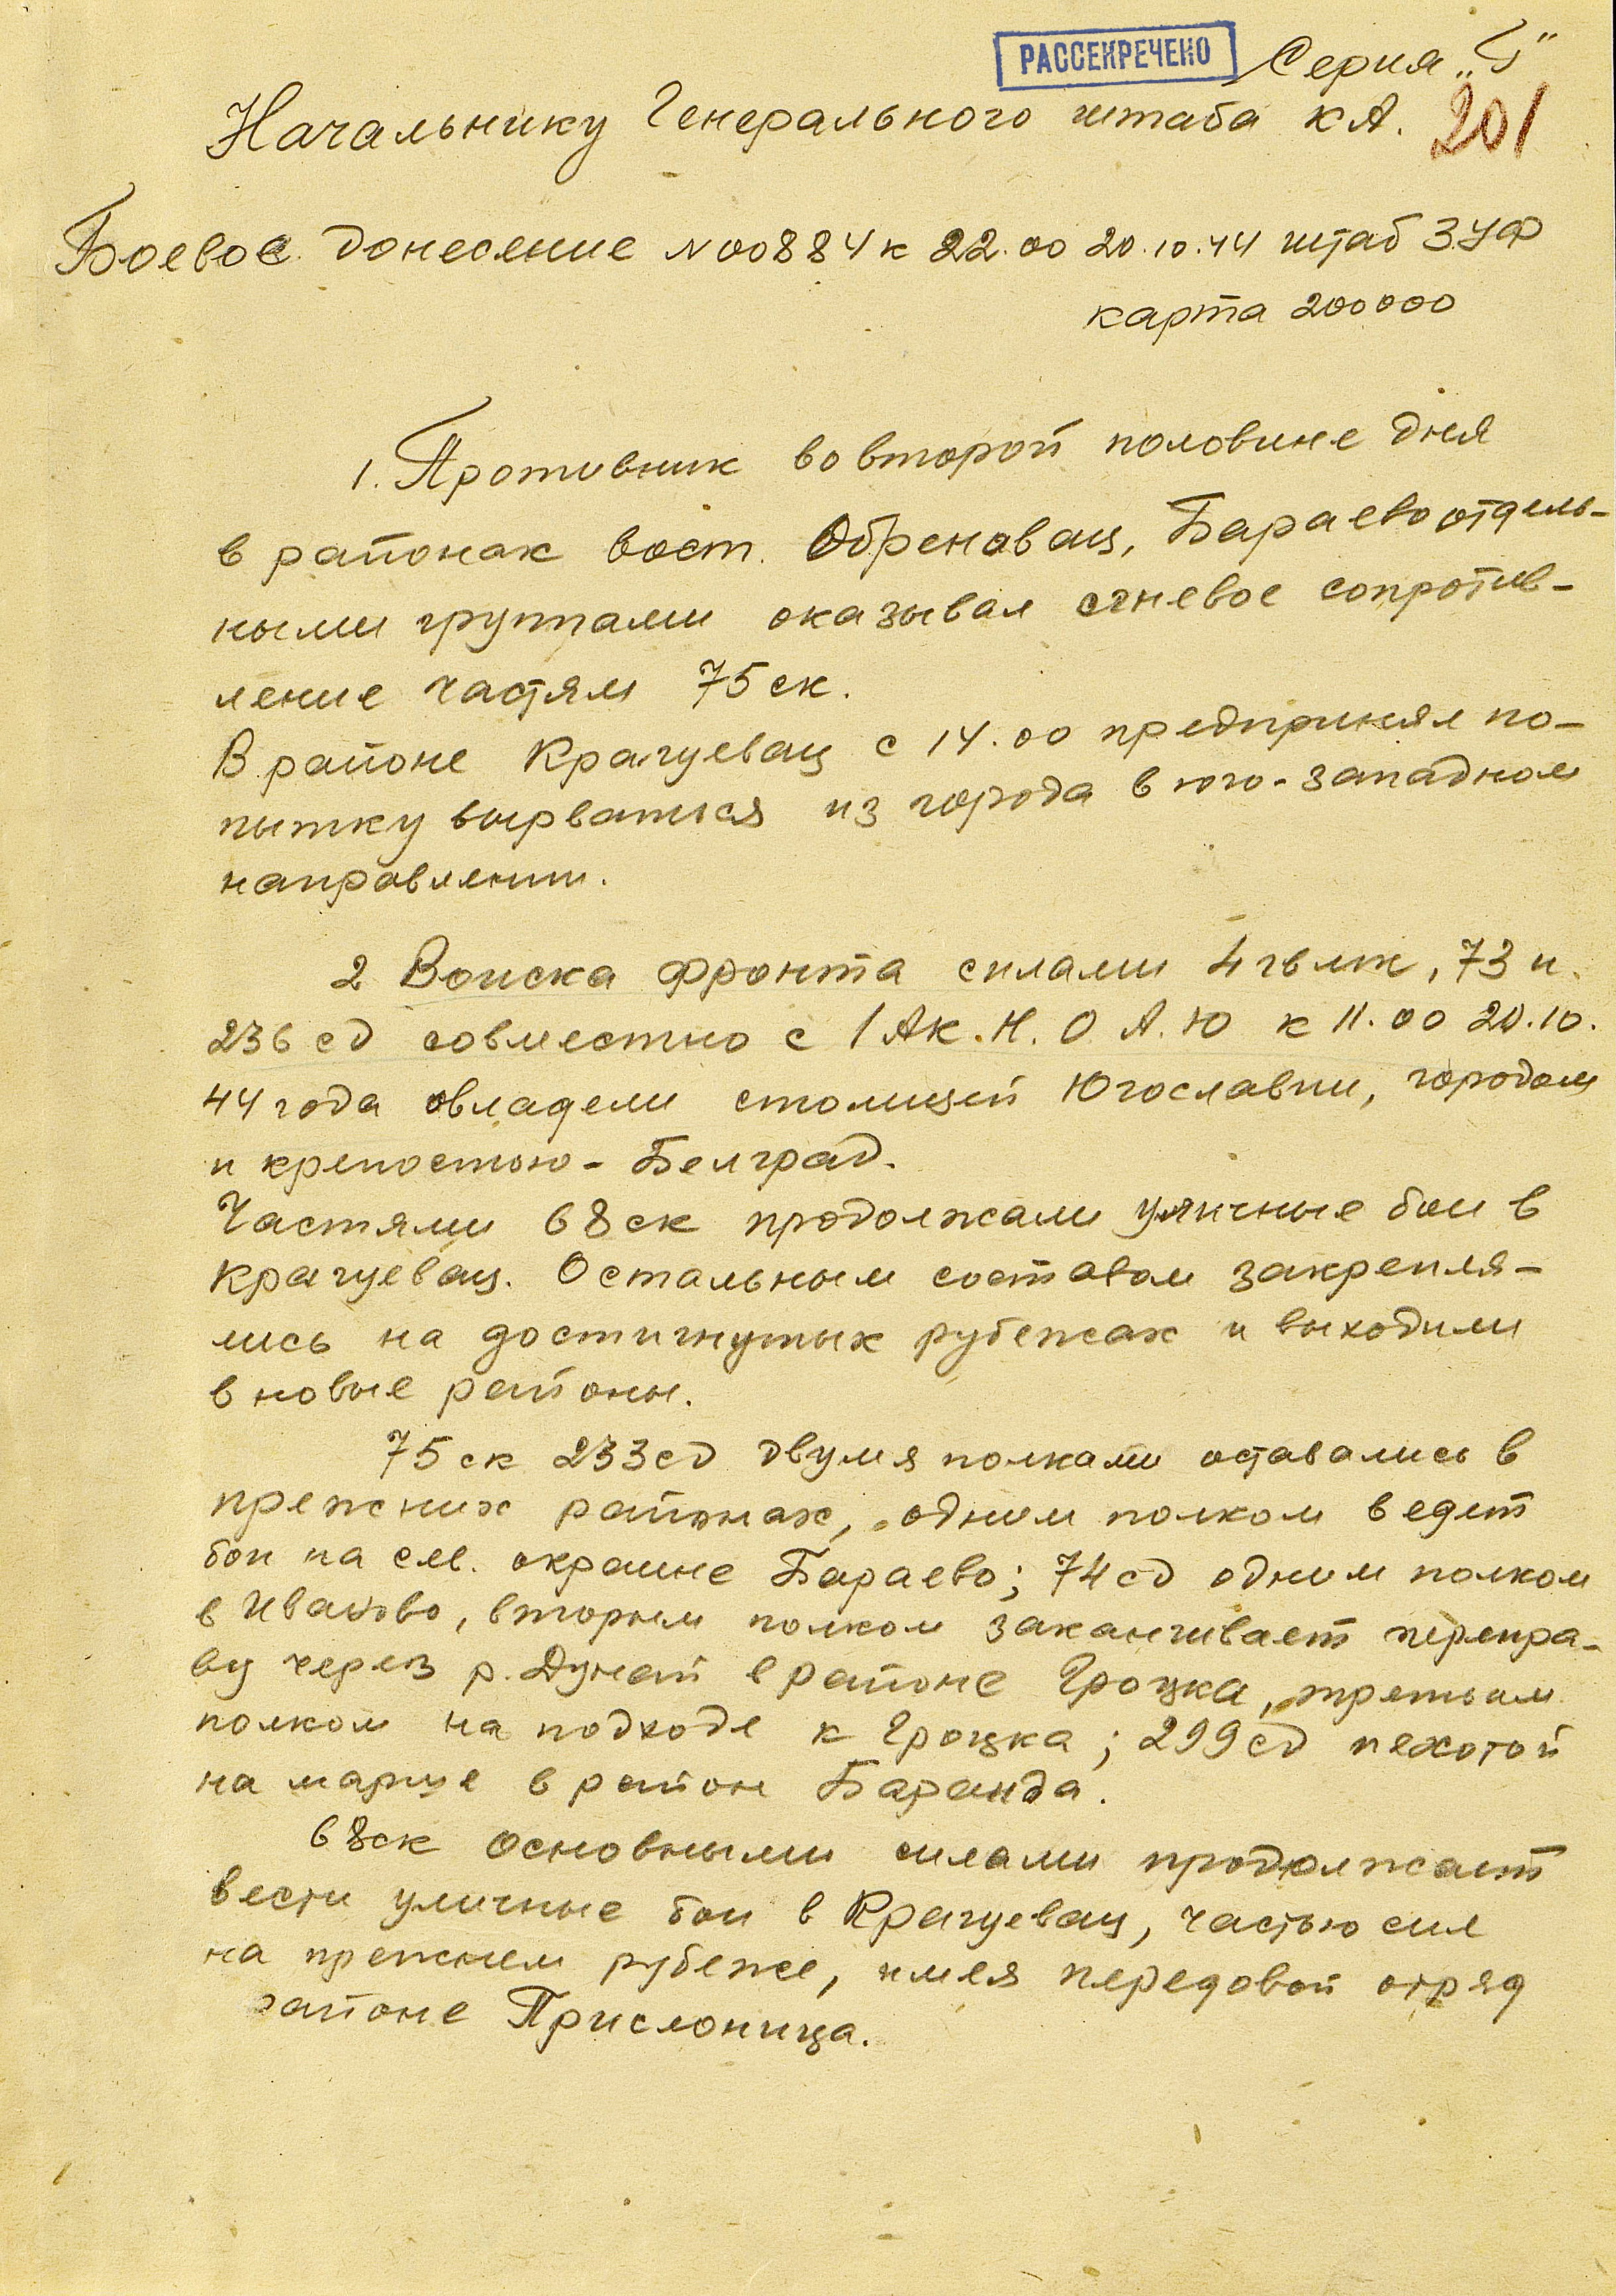 РАССЕКРЕЧЕНО Серия „Г“
Начальнику Генерального штаба КА. 201
Боевое донесение N 00884 к 22.00 20.10.44 штаб 3 УФ
карта 200000
1. Противник во второй половине дня
в районах вост. Обреновац, Бараево отдель-
ными группами оказывал огневое сопротив-
ление частям 75 ск.
В районе Крагуевац с 14.00 предпринял по-
пытку вырваться из города в юго-западном
направлении.
2 Войска фронта силами 4 гв мк, 73 и
236 сд совместно с 1 АК. Н. О А. Ю к 11.00 20.10.
44 года овладели столицей Югославии, городом
и крепостью - Белград.
Частями 68 ск продолжали уличные бои в
Крагуевац. Остальным составом закрепля-
лись на достигнутых рубежах и выходили
в новые районы.
75 ск 233 сд двумя полками оставались в
прежних районах, одним полком ведет
бои на сев. окраине Бараево; 74 сд одним полком
в Иваново, вторым полком заканчивает перепра-
ву через р. Дунай в районе Гроцка, третьим
полком на подходе к Гроцка; 299 сд пехотой
на марше в район Баранда.
68 ск основными силами продолжает
вести уличные бои в Крагуевац, частью сил
на прежнем рубеже, имея передовой отряд
районе Прислоница.